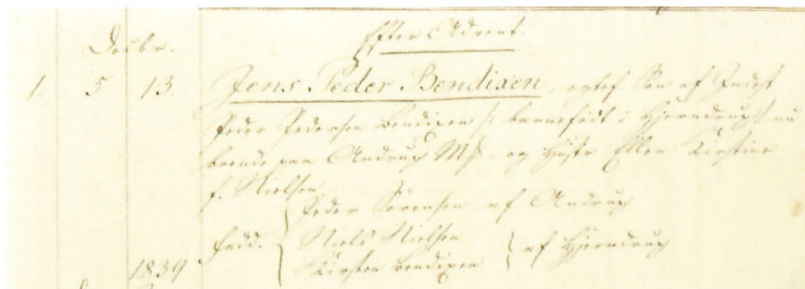 Decbr. Efter Advent.
1. 5 13. Jens Peder Bendixen, egtef. Søn af Indest
Peder Pedersen Bendixen /: barnefødt i Hjerndrup :/ nu
boende paa Andrup M[] og Hustr. Ellen Kirstine
f. Nielsen
Peder Sørensen af Andrup
Fadd. Niels Nielsen
Kirsten Bendixen } af Hjerndrup
1839